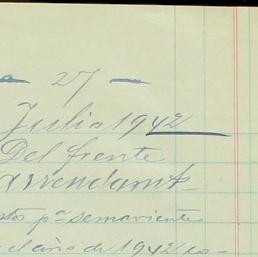 27
Julio 1942
Del frente
arrendamt
pª semoviente
el año de 1942